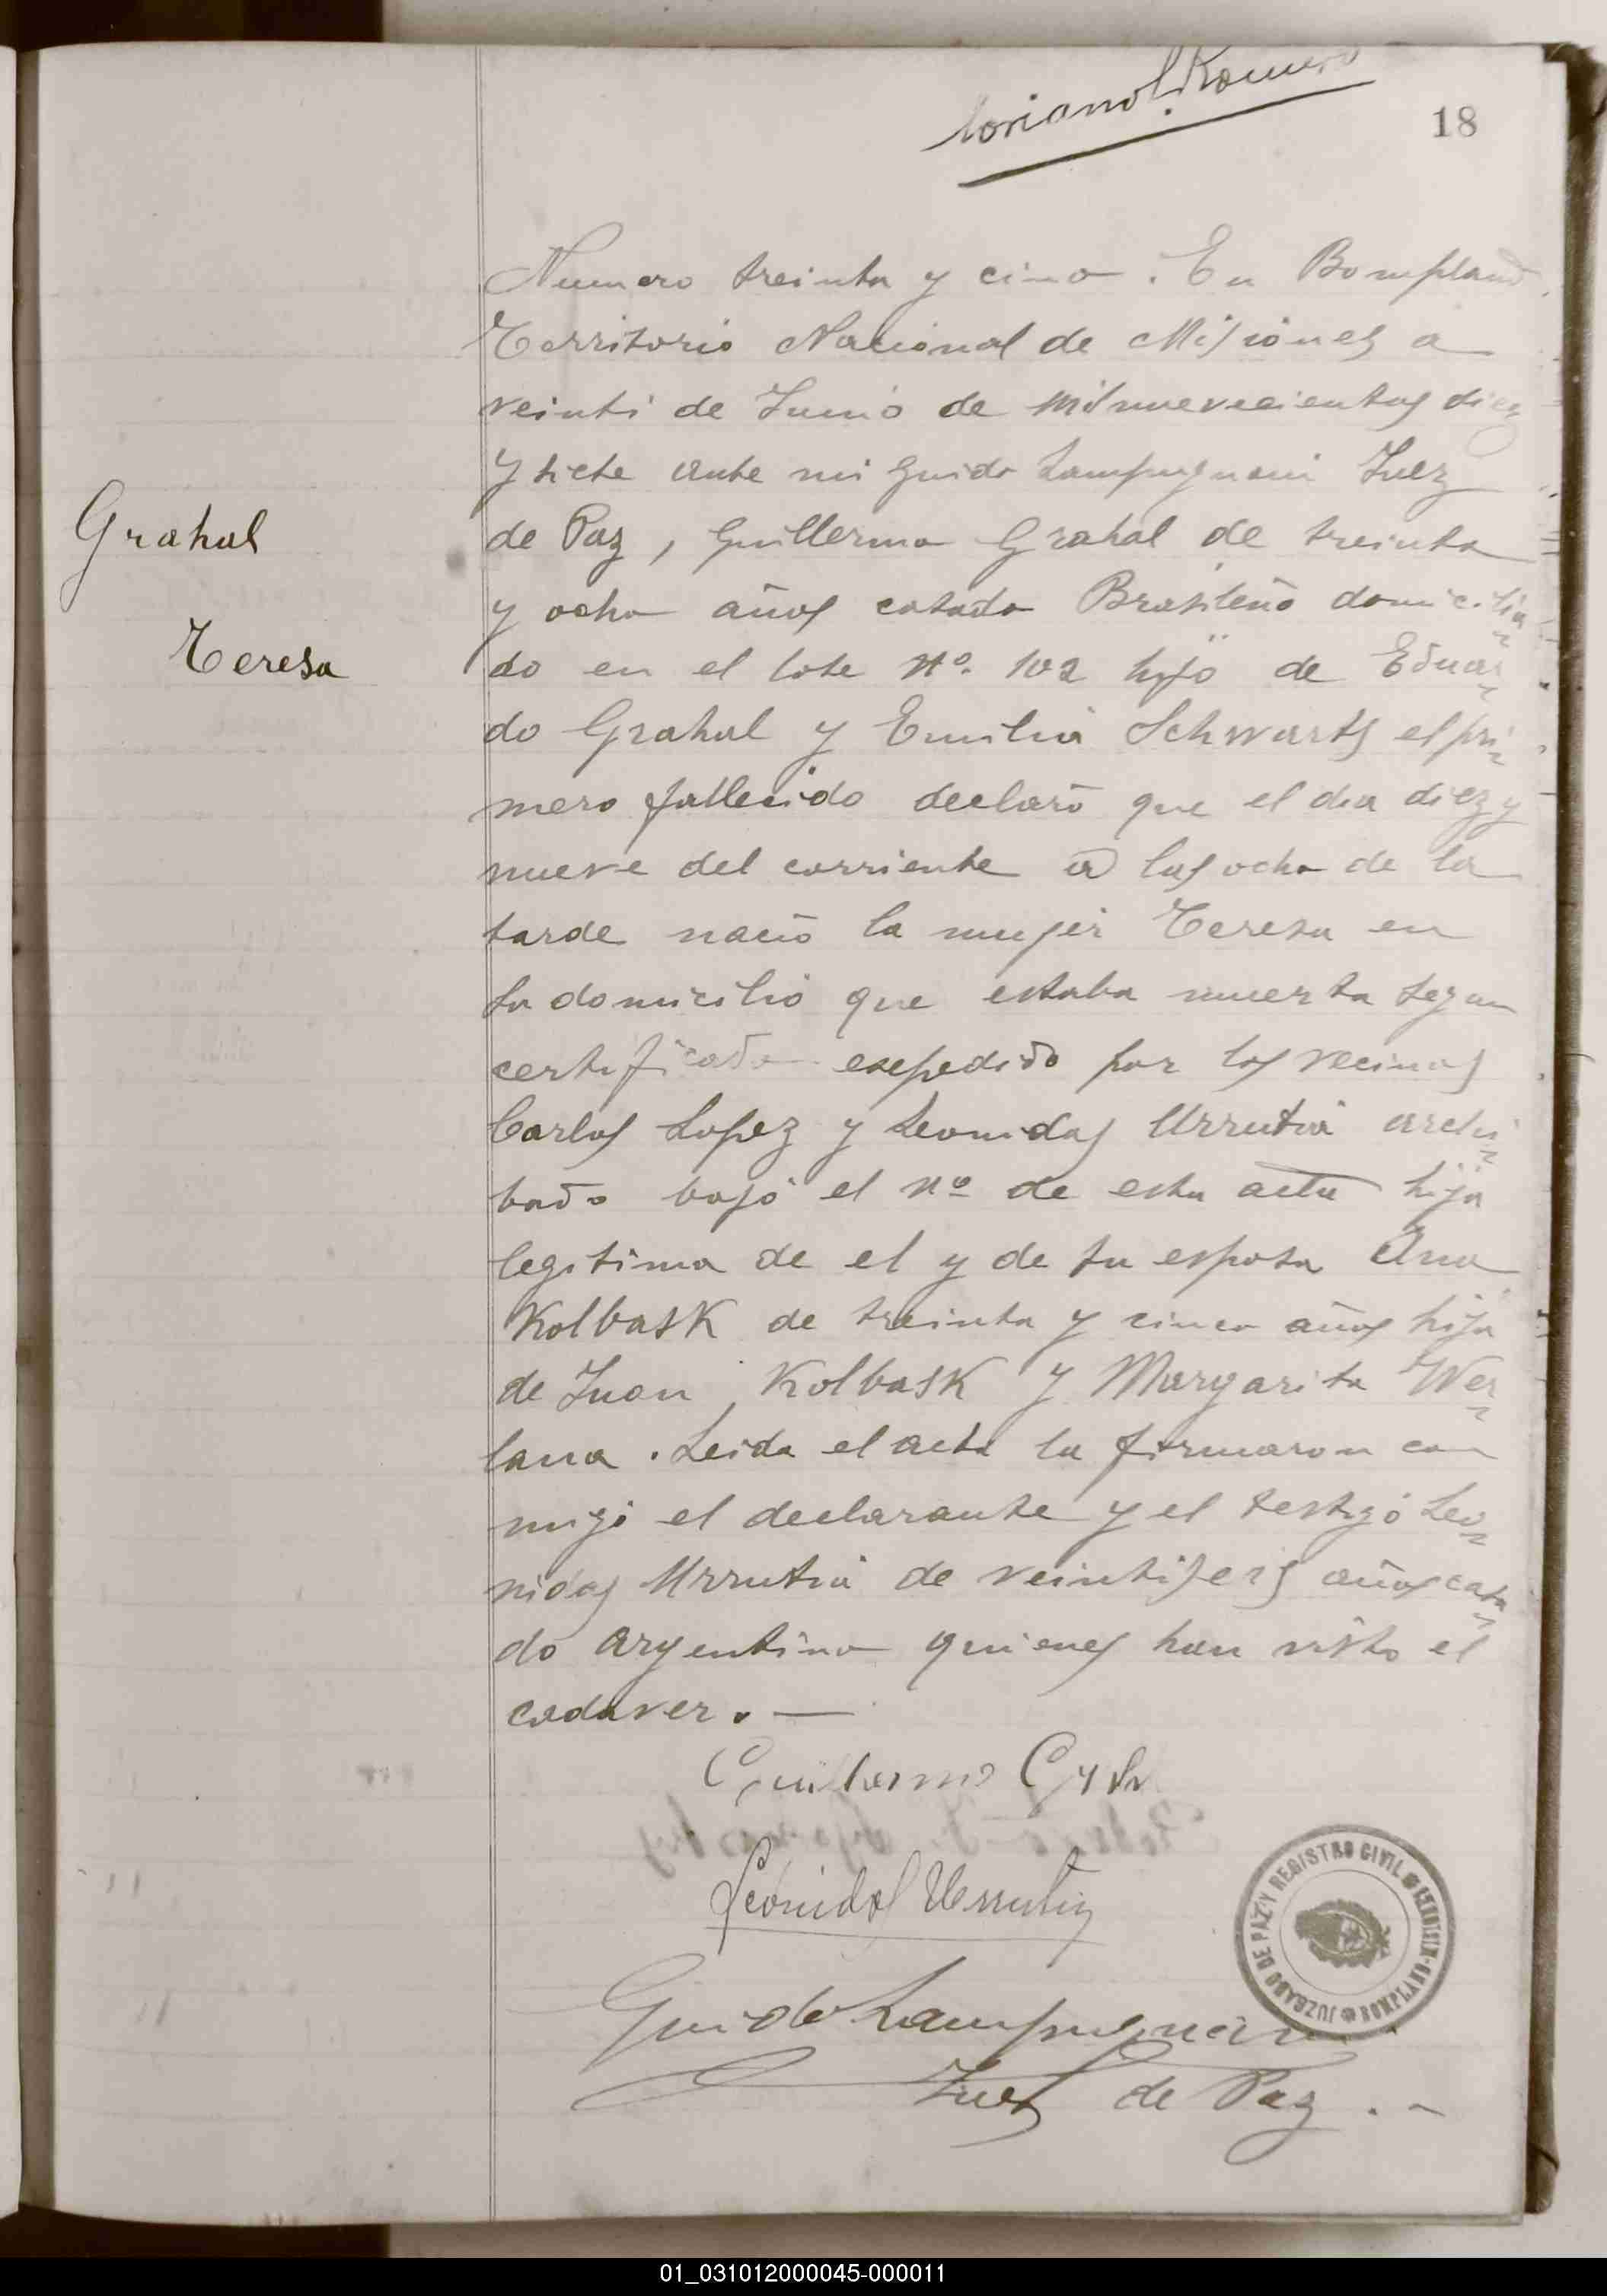 Loriano L. Romero
18
Numero treinta y cinco. En Bompland
Territorio Nacional de Misiones a
veinti de Junio de mil nuevecientos diez
y siete ante mi Guido Lampugnani Juez
de Paz, Guillermo Grahal de treinta
y ocho años casado Brasileño domicilia
do en el lote Nº. 102 hijo de Eduar
do Grahal y Emilia Schwarts el pri
mero fallecido declaró que el dia diez y
nueve del corriente a las ocho de la
tarde nació la mujer Teresa en
su domicilio que estaba muerta segun
certificado expedido por los vecinos
Carlos Lopez y Leonidas Urrutia archi
bado bajo el nº de esta acta hija
legitima de el y de su esposa Ana
Kolbask de treinta y cinco años hija
de Juan Kolbask y Margarita Wer
lana. Leida el acta la firmaron con
migo el declarante y el testigo Leo
nidas Urrutia de veintiseis años casa
do argentino quienes han visto el
cadaver. —
Grahal
Teresa
Guilhermo
Leonidas Urrutia
Guido Lampugnani
Juez de Paz. -
JUZGADO DE PAZ Y REGISTRO CIVIL
BOMPLAND-MISIONES
01_031012000045-000011